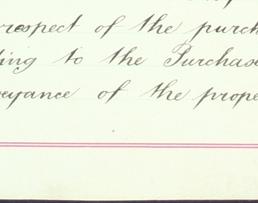 respect of the purch
ting to the Purchase
eyance of the prope